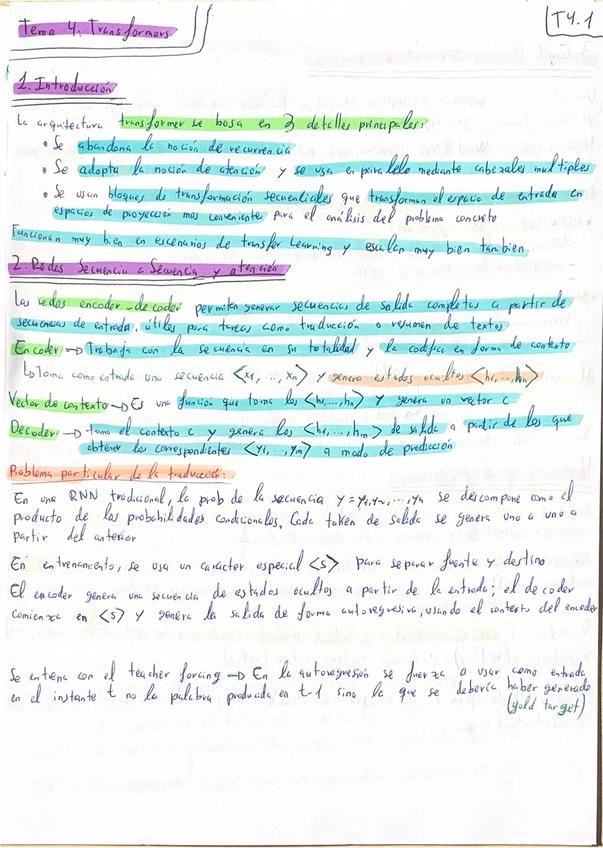 Tema 4: Transformers
T4.1
1. Introducción
La arquitectura transformer se basa en 3 detalles principales:
• Se abandona la noción de recurrencia
• Se adopta la noción de atención y se usa en paralelo mediante cabezales multiples
• Se usan bloques de transformación secuenciales que transforman el espacio de entrada en
espacios de proyección mas convenientes para el análisis del problema concreto
Funcionan muy bien en escenarios de transfer Learning y escalan muy bien tambien
2. Redes Secuencia a Secuencia y atención
Las redes encoder-decoder permiten generar secuencias de salida completas a partir de
secuencias de entrada, útiles para tareas como traducción o resumen de textos
Encoder → Trabaja con la secuencia en su totalidad y la codifica en forma de contexto
↳ Toma como entrada una secuencia <x1, ..., xn> y genera estados ocultos <h1, ..., hn>
Vector de contexto → Es una función que toma los <h1, ..., hn> y genera un vector c
Decoder → toma el contexto c y genera los <h1, ..., hm> de salida a partir de los que
obtener los correspondientes <y1, ..., ym> a modo de predicción
Problema particular de la traducción:
En una RNN tradicional, la prob de la secuencia y = y1, y2, ..., yn se descompone como el
producto de las probabilidades condicionales. Cada token de salida se genera uno a uno a
partir del anterior
En entrenamiento, se usa un carácter especial <S> para separar fuente y destino
El encoder genera una secuencia de estados ocultos a partir de la entrada; el decoder
comienza en <S> y genera la salida de forma autoregresiva, usando el contexto del encoder
Se entrena con el teacher forcing → En la autoregresión se fuerza a usar como entrada
en el instante t no la palabra producida en t-1 sino la que se debería haber generado
(gold target)